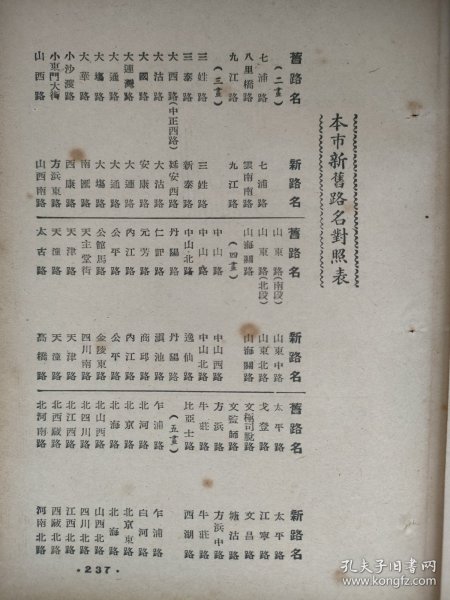 本市新舊路名對照表
舊路名 新路名
(二畫)
七浦路 七浦路
八里橋路 雲南南路
九江路 九江路
(三畫)
三姓路 三姓路
三泰路 新泰路
大西路(中正西路) 延安西路
大沽路 大沽路
大國路 安康路
大連灣路 大連路
大通路 大通路
大塲路 大塲路
大華路 南匯路
小沙渡路 西康路
小東門大街 方浜東路
山西路 山西南路
舊路名 新路名
山東路(南段) 山東中路
山東路(北段) 山東北路
山海關路 山海關路
(四畫)
中山路 中山西路
中山路 中山北路
中山北路 逸仙路
丹陽路 丹陽路
仁記路 滇池路
元芳路 商邱路
內江路 內江路
公平路 公平路
公館馬路 金陵東路
天主堂街 四川南路
天津路 天津路
天潼路 天潼路
太古路 高橋路
舊路名 新路名
太平路 太平路
戈登路 江寧路
文極司脫路 文昌路
文監師路 塘沽路
方浜路 方浜中路
牛莊路 牛莊路
比亞士路 西湖路
(五畫)
乍浦路 乍浦路
北河路 白河路
北京路 北京東路
北海路 北海路
北山西路 山西北路
北四川路 四川北路
北江西路 江西北路
北西藏路 西藏北路
北河南路 河南北路
·237·
孔夫子旧书网